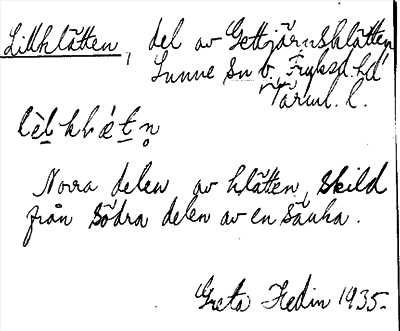 Lillklätten, del av Gettjärnsklätten
Sunne sn Fryksd. hd
Värml. l.
Norra delen av klätten, skild
från södra delen av en sänka.
Greta Hedin 1935.